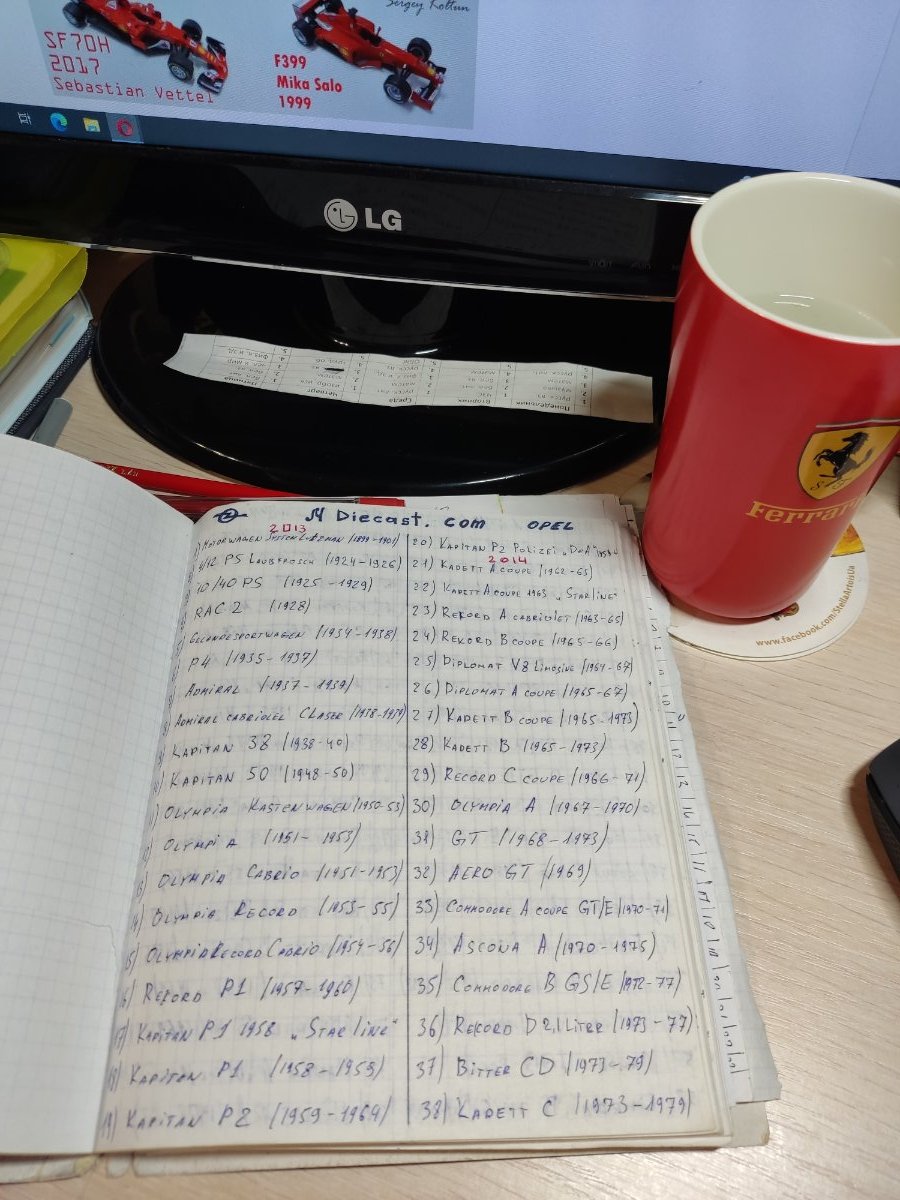 Sergey Koltun
SF70H
2017
Sebastian Vettel
F399
Mika Salo
1999
LG
Понедельник
Вторник
Среда
Четверг
Пятница
SF
Ferrari
www.facebook.com/StellaArtoisUa
Diecast.com OPEL
2013
Motorwagen System Lutzman (1899-1901)
4/12 PS Laubfrosch (1924-1926)
10/40 PS (1925-1929)
RAC 2 (1928)
Gelandesportwagen (1934-1938)
P4 (1935-1937)
Admiral (1937-1939)
Admiral cabriolel Claser (1938-1939)
Kapitan 38 (1938-40)
Kapitan 50 (1948-50)
Olympia Kastenwagen (1950-53)
Olympia (1951-1953)
13) Olympia Cabrio (1951-1953)
14) Olympia Record (1953-55)
15) Olympia Record Cabrio (1954-56)
16) Rekord P1 (1957-1960)
17) Kapitan P1 1958 „Starline"
18) Kapitan P1 (1958-1959)
19) Kapitan P2 (1959-1964)
20) Kapitan P2 Polizei
2014
21) Kadett A coupe (1962-65)
22) Kadett A coupe 1963 „Starline"
23) Rekord A cabriolet (1963-65)
24) Rekord B coupe (1965-66)
25) Diplomat V8 Limosine (1964-67)
26) Diplomat A coupe (1965-67)
27) Kadett B coupe (1965-1973)
28) Kadett B (1965-1973)
29) Record C coupe (1966-71)
30) Olympia A (1967-1970)
31) GT (1968-1973)
32) Aero GT (1969)
33) Commodore A coupe GT/E (1970-71)
34) Ascona A (1970-1975)
35) Commodore B GS/E (1972-77)
36) Rekord D 2.1 Liter (1973-77)
37) Bitter CD (1973-79)
38) Kadett C (1973-1979)